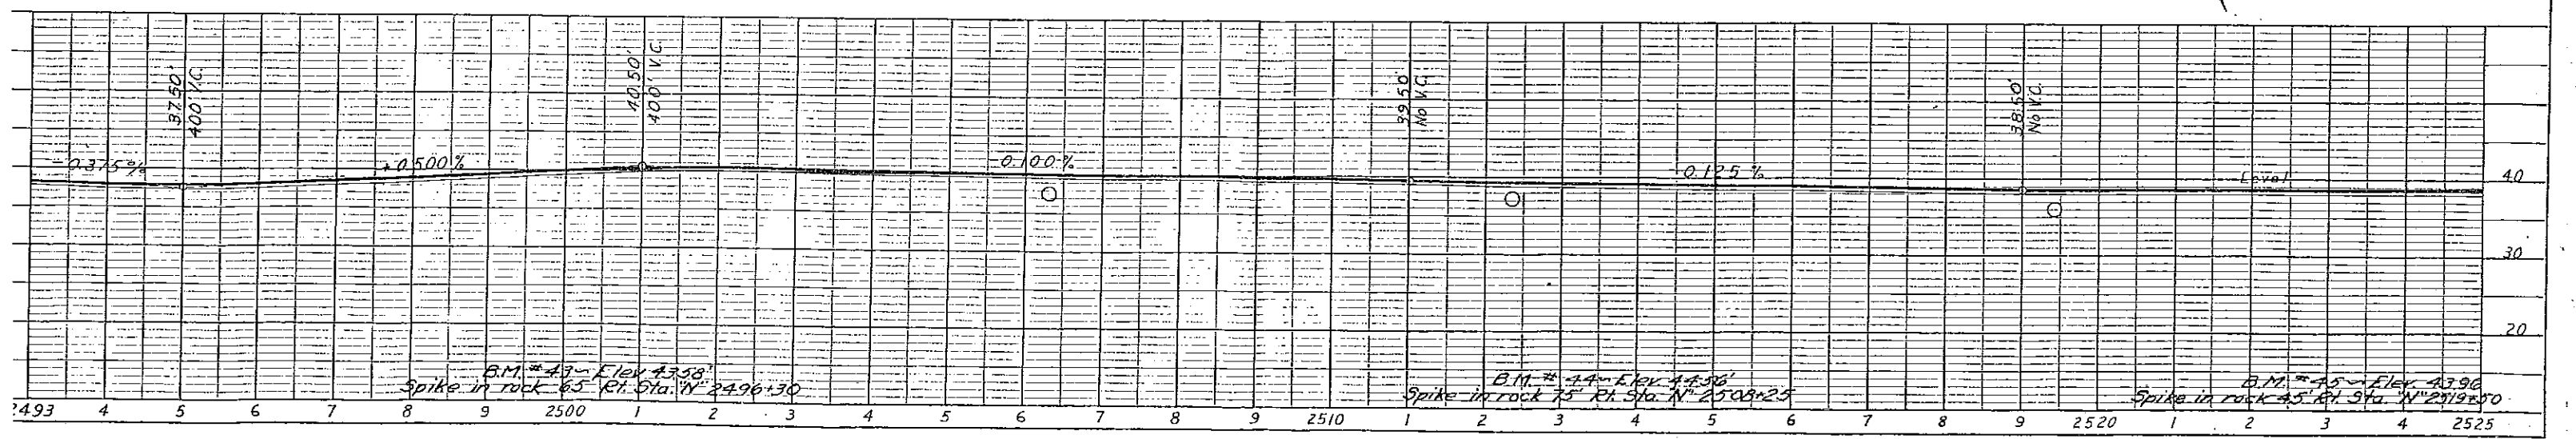 37.50'
400' V.C.
40.50'
400' V.C.
39.50'
No V.C.
38.50'
No V.C.
- 0.375 %
+ 0.500 %
- 0.100 %
0.125 %
Level
40
30
20
B.M. # 43 ~ Elev. 43.58'
Spike in rock 65' Rt. Sta. "N" 2496+30
B.M. # 44 ~ Elev. 44.56'
Spike in rock 75' Rt. Sta. "N" 2508+25
B.M. # 45 ~ Elev. 43.96
Spike in rock 45' Rt. Sta. "N" 2519+50
2493 4 5 6 7 8 9 2500 1 2 3 4 5 6 7 8 9 2510 1 2 3 4 5 6 7 8 9 2520 1 2 3 4 2525